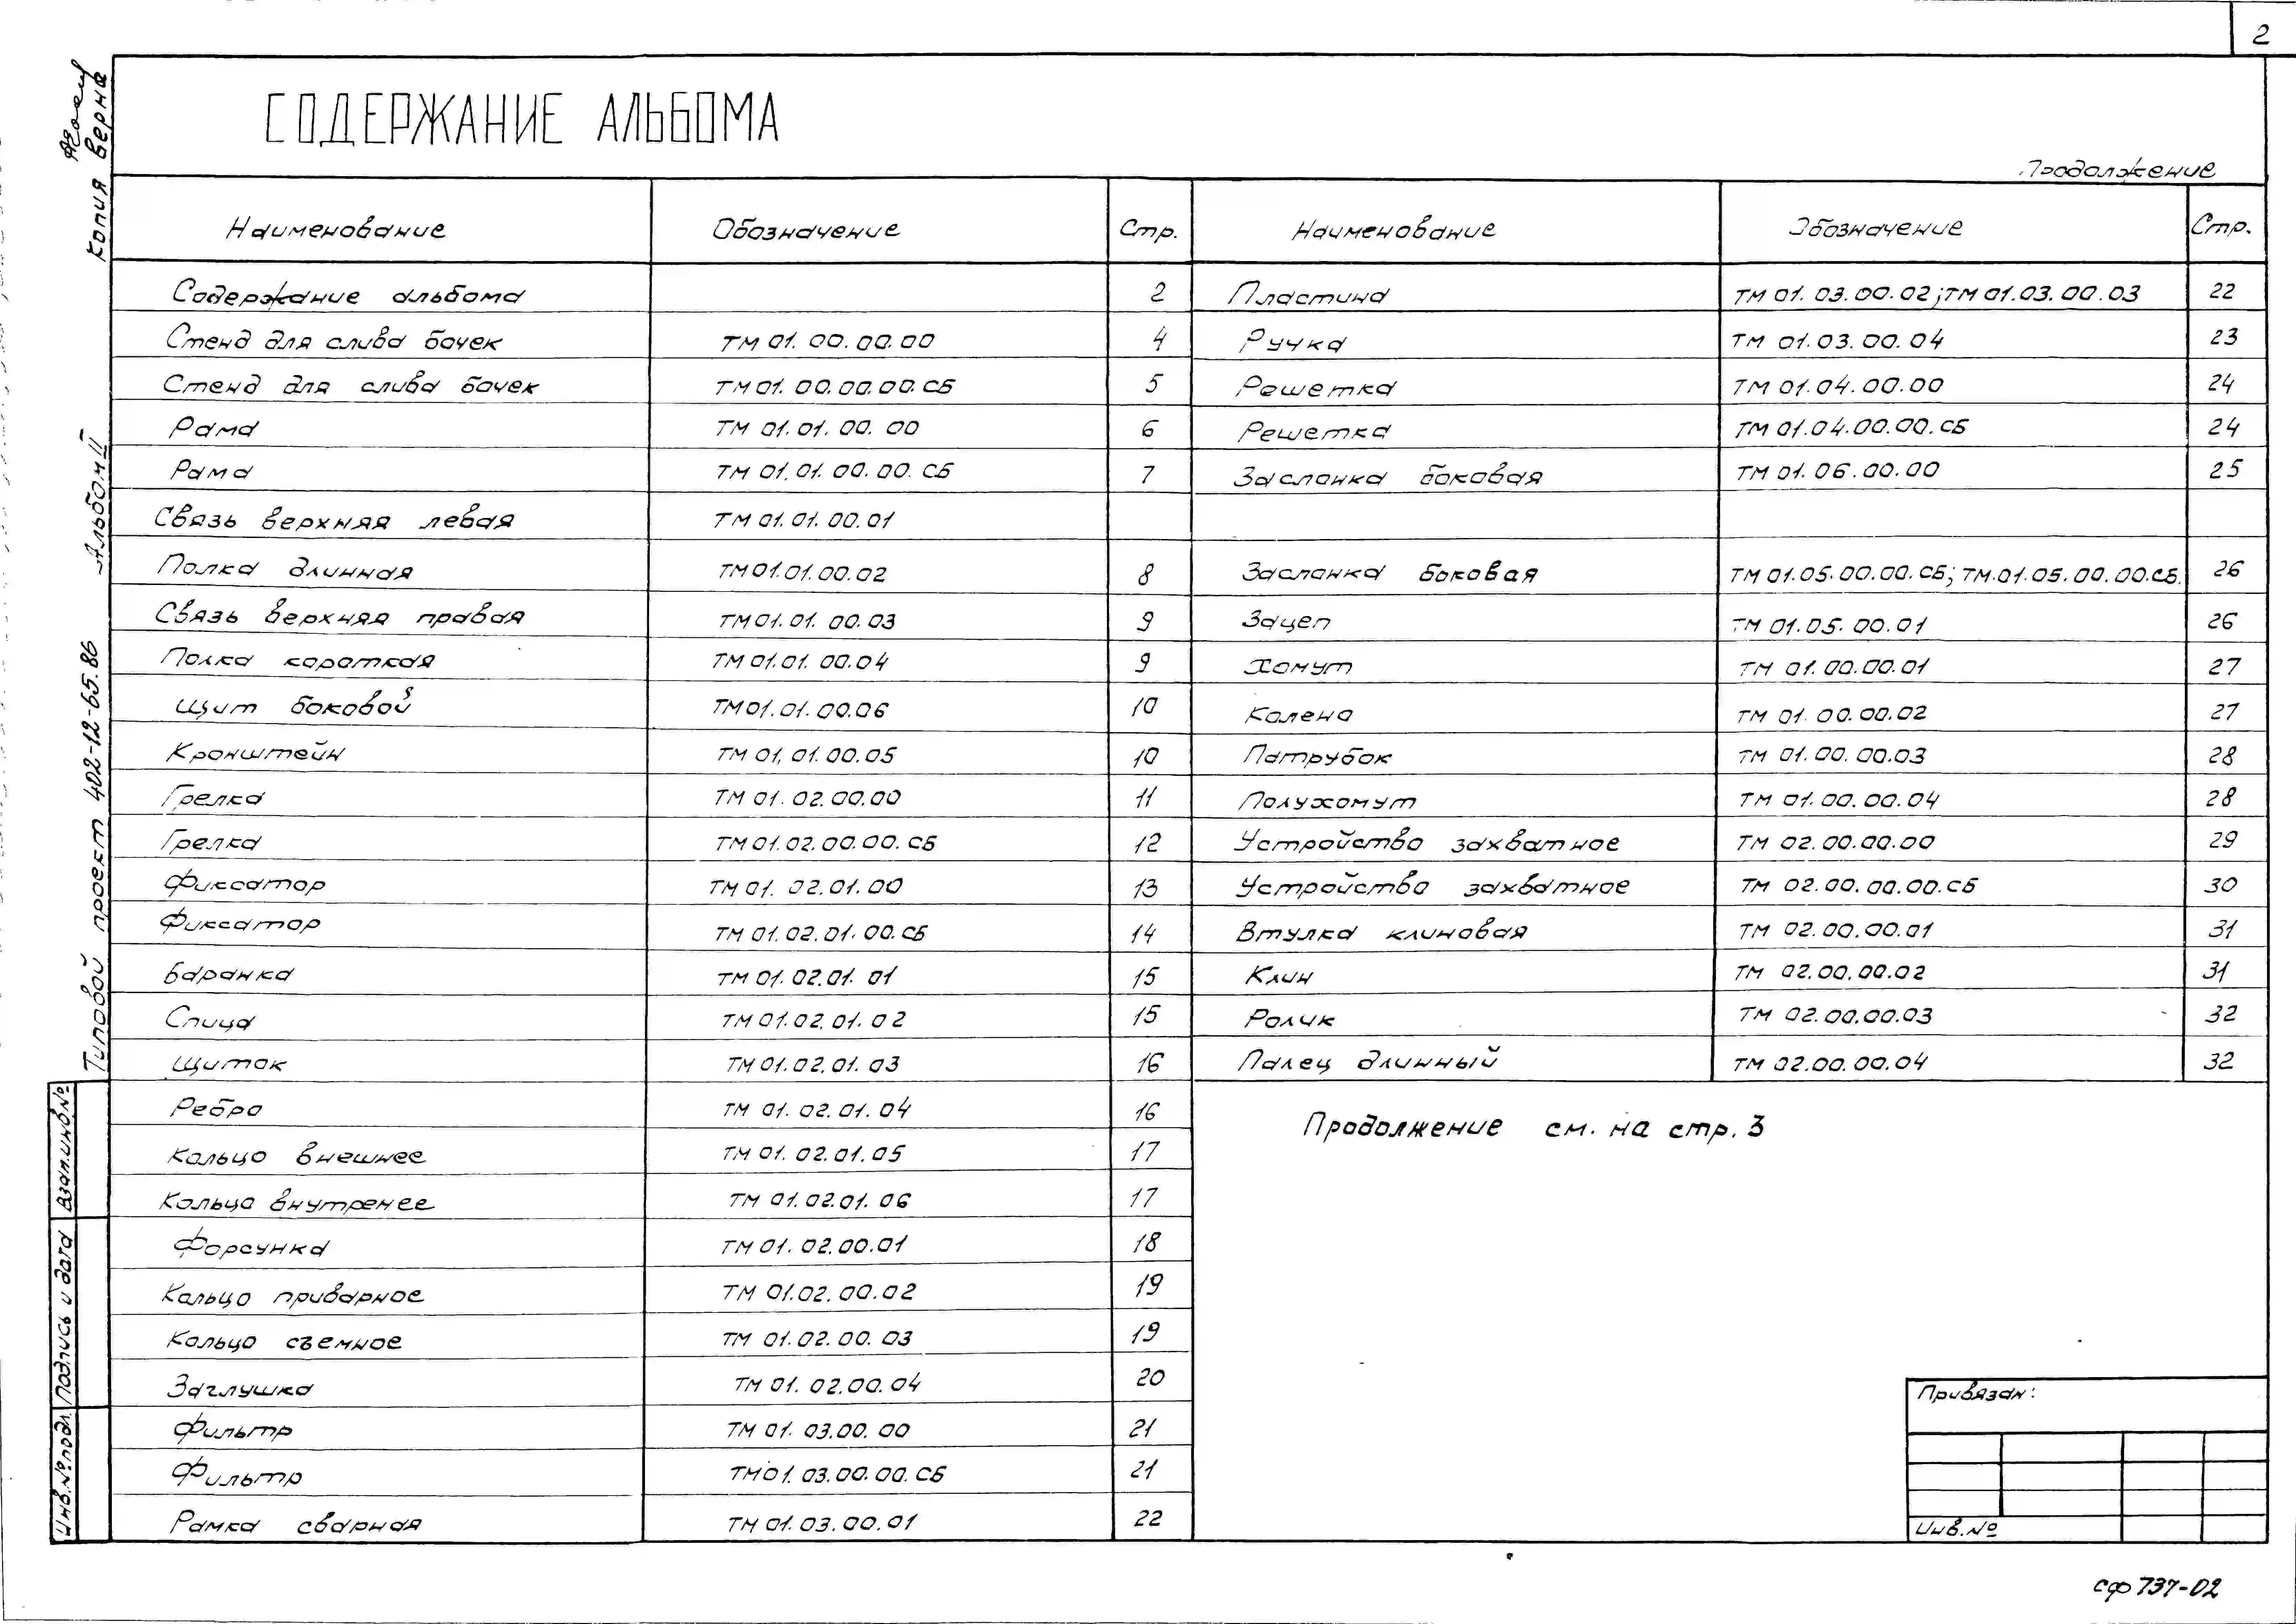 2
СОДЕРЖАНИЕ АЛЬБОМА
Продолжение
Наименование Обозначение Стр.
Содержание альбома 2
Стенд для слива бочек ТМ 01. 00. 00. 00 4
Стенд для слива бочек ТМ 01. 00. 00. 00. СБ 5
Рама ТМ 01. 01. 00. 00 6
Рама ТМ 01. 01. 00. 00. СБ 7
Связь верхняя левая ТМ 01. 01. 00. 01
Полка длинная ТМ 01.01.00.02 8
Связь верхняя правая ТМ 01. 01. 00. 03 9
Полка короткая ТМ 01.01. 00.04 9
Щит боковой ТМ 01. 01. 00.06 10
Кронштейн ТМ 01, 01. 00. 05 10
Грелка ТМ 01. 02. 00.00 11
Грелка ТМ 01. 02. 00. 00. СБ 12
Фиксатор ТМ 01. 02. 01. 00 13
Фиксатор ТМ 01. 02. 01. 00. СБ 14
Баранка ТМ 01. 02.01. 01 15
Спица ТМ 01.02. 01. 02 15
Щиток ТМ 01. 02. 01. 03 16
Ребро ТМ 01. 02. 01. 04 16
Кольцо внешнее ТМ 01. 02. 01. 05 17
Кольцо внутренее ТМ 01. 02. 01. 06 17
Форсунка ТМ 01. 02. 00. 01 18
Кольцо приварное ТМ 01.02. 00. 02 19
Кольцо съемное ТМ 01.02. 00. 03 19
Заглушка ТМ 01. 02. 00. 04 20
Фильтр ТМ 01. 03.00. 00 21
Фильтр ТМ 01. 03. 00. 00. СБ 21
Рамка сварная ТМ 01. 03. 00. 01 22
Наименование Обозначение Стр.
Пластина ТМ 01. 03. 00. 02; ТМ 01.03. 00. 03 22
Ручка ТМ 01. 03. 00. 04 23
Решетка ТМ 01. 04. 00. 00 24
Решетка ТМ 01.04.00.00. СБ 24
Заслонка боковая ТМ 01. 06. 00. 00 25
Заслонка боковая ТМ 01.05. 00. 00. СБ; ТМ.01.05. 00. 00.СБ. 26
Зацеп ТМ 01.05. 00. 01 26
Хомут ТМ 01. 00. 00. 01 27
Колено ТМ 01. 00. 00. 02 27
Патрубок ТМ 01. 00. 00.03 28
Полухомут ТМ 01. 00. 00. 04 28
Устройство захватное ТМ 02. 00. 00. 00 29
Устройство захватное ТМ 02. 00. 00. 00. СБ 30
Втулка клиновая ТМ 02. 00. 00. 01 31
Клин ТМ 02. 00. 00.02 31
Ролик ТМ 02. 00.00.03 32
Палец длинный ТМ 02.00. 00. 04 32
Продолжение см. на стр. 3
Привязан:
Инв.№
сф 737-02
Копия верна
Типовой проект 402-12-65.86 Альбом II
Взам.инв№
Подпись и дата
Инв.№подл.